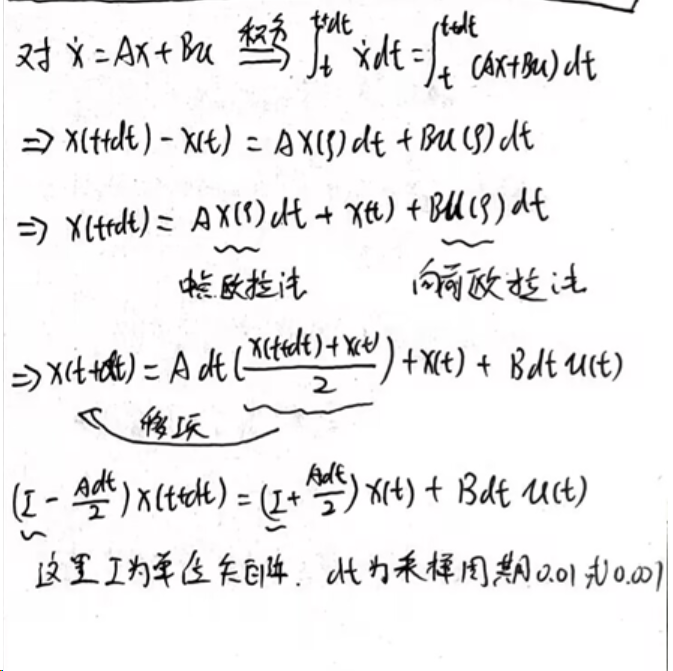 对 ẋ = Ax + Bu 积分⟹ ∫ₜᵗ⁺ᵈᵗ ẋdt = ∫ₜᵗ⁺ᵈᵗ (Ax+Bu)dt
⇒ X(t+dt) - X(t) = AX(ξ)dt + Bu(ξ)dt
⇒ X(t+dt) = AX(ξ)dt + X(t) + Bu(ξ)dt
中点欧拉法 向前欧拉法
⇒ X(t+dt) = A dt (X(t+dt)+X(t)/2) + X(t) + Bdt u(t)
移项
(I - Adt/2) X(t+dt) = (I + Adt/2) X(t) + Bdt u(t)
这里I为单位矩阵. dt为采样周期0.01或0.001